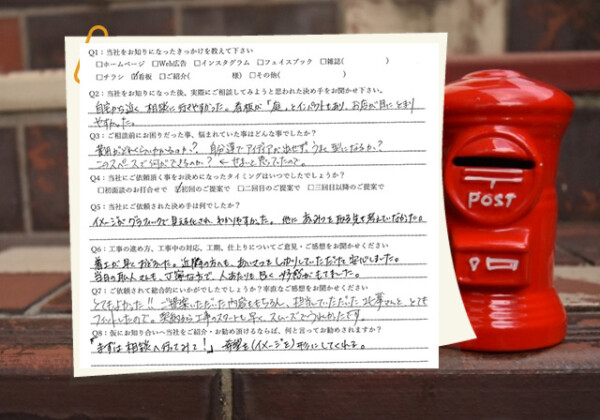 Q1：当社をお知りになったきっかけを教えて下さい
□ホームページ □Web広告 □インスタグラム □フェイスブック □雑誌( )
□チラシ ☑看板 □ご紹介( 様) □その他( )
Q2：当社をお知りになった後、実際にご相談してみようと思われた決め手をお聞かせ下さい。
自宅から近く 相談に行きやすかった。看板が「庭」とインパクトもあり、お店が目にとまり
やすかった。
Q3：ご相談前にお困りだった事、悩まれていた事はどんな事でしたか？
費用がどれくらいかかるのか？ 自分達でアイディアが出せず うまく形になるか？
このスペースで何ができるのか？ ← せまいと思っていたので。
Q4：当社にご依頼頂く事をお決めになったタイミングはいつでしたでしょうか？
□初面談のお打合せで ☑初回のご提案で □二回目のご提案で □三回目以降のご提案で
Q5：当社にご依頼された決め手は何でしたか？
イメージがグラフィックで見える化され、わかりやすかった。他に あいみつを取る気も起きていなかった。
Q6：工事の進め方、工事中の対応、工期、仕上りについてご意見・ご感想をお聞かせください
着工が早く おどろいた。近隣の方へも、あいさつをしっかりしていただいた 安心しました。
当日の職人さんも、丁寧な方で、人あたりも良く 好感がもてました。
Q7：ご依頼されて総合的にいかがでしたでしょうか？率直なご感想をお聞かせください
とてもよかった!! ご提案いただいた内容ももちろん、担当していただいた さんと、とても
フィットしたので。契約から工事のスタートも早く、スムーズでうれしかったです。
Q8：仮にお知り合いへ当社をご紹介・お勧め頂けるならば、何と言ってお勧めされますか？
「まずは相談へ行ってみて！」 希望を(イメージを)形にしてくれる。
POST